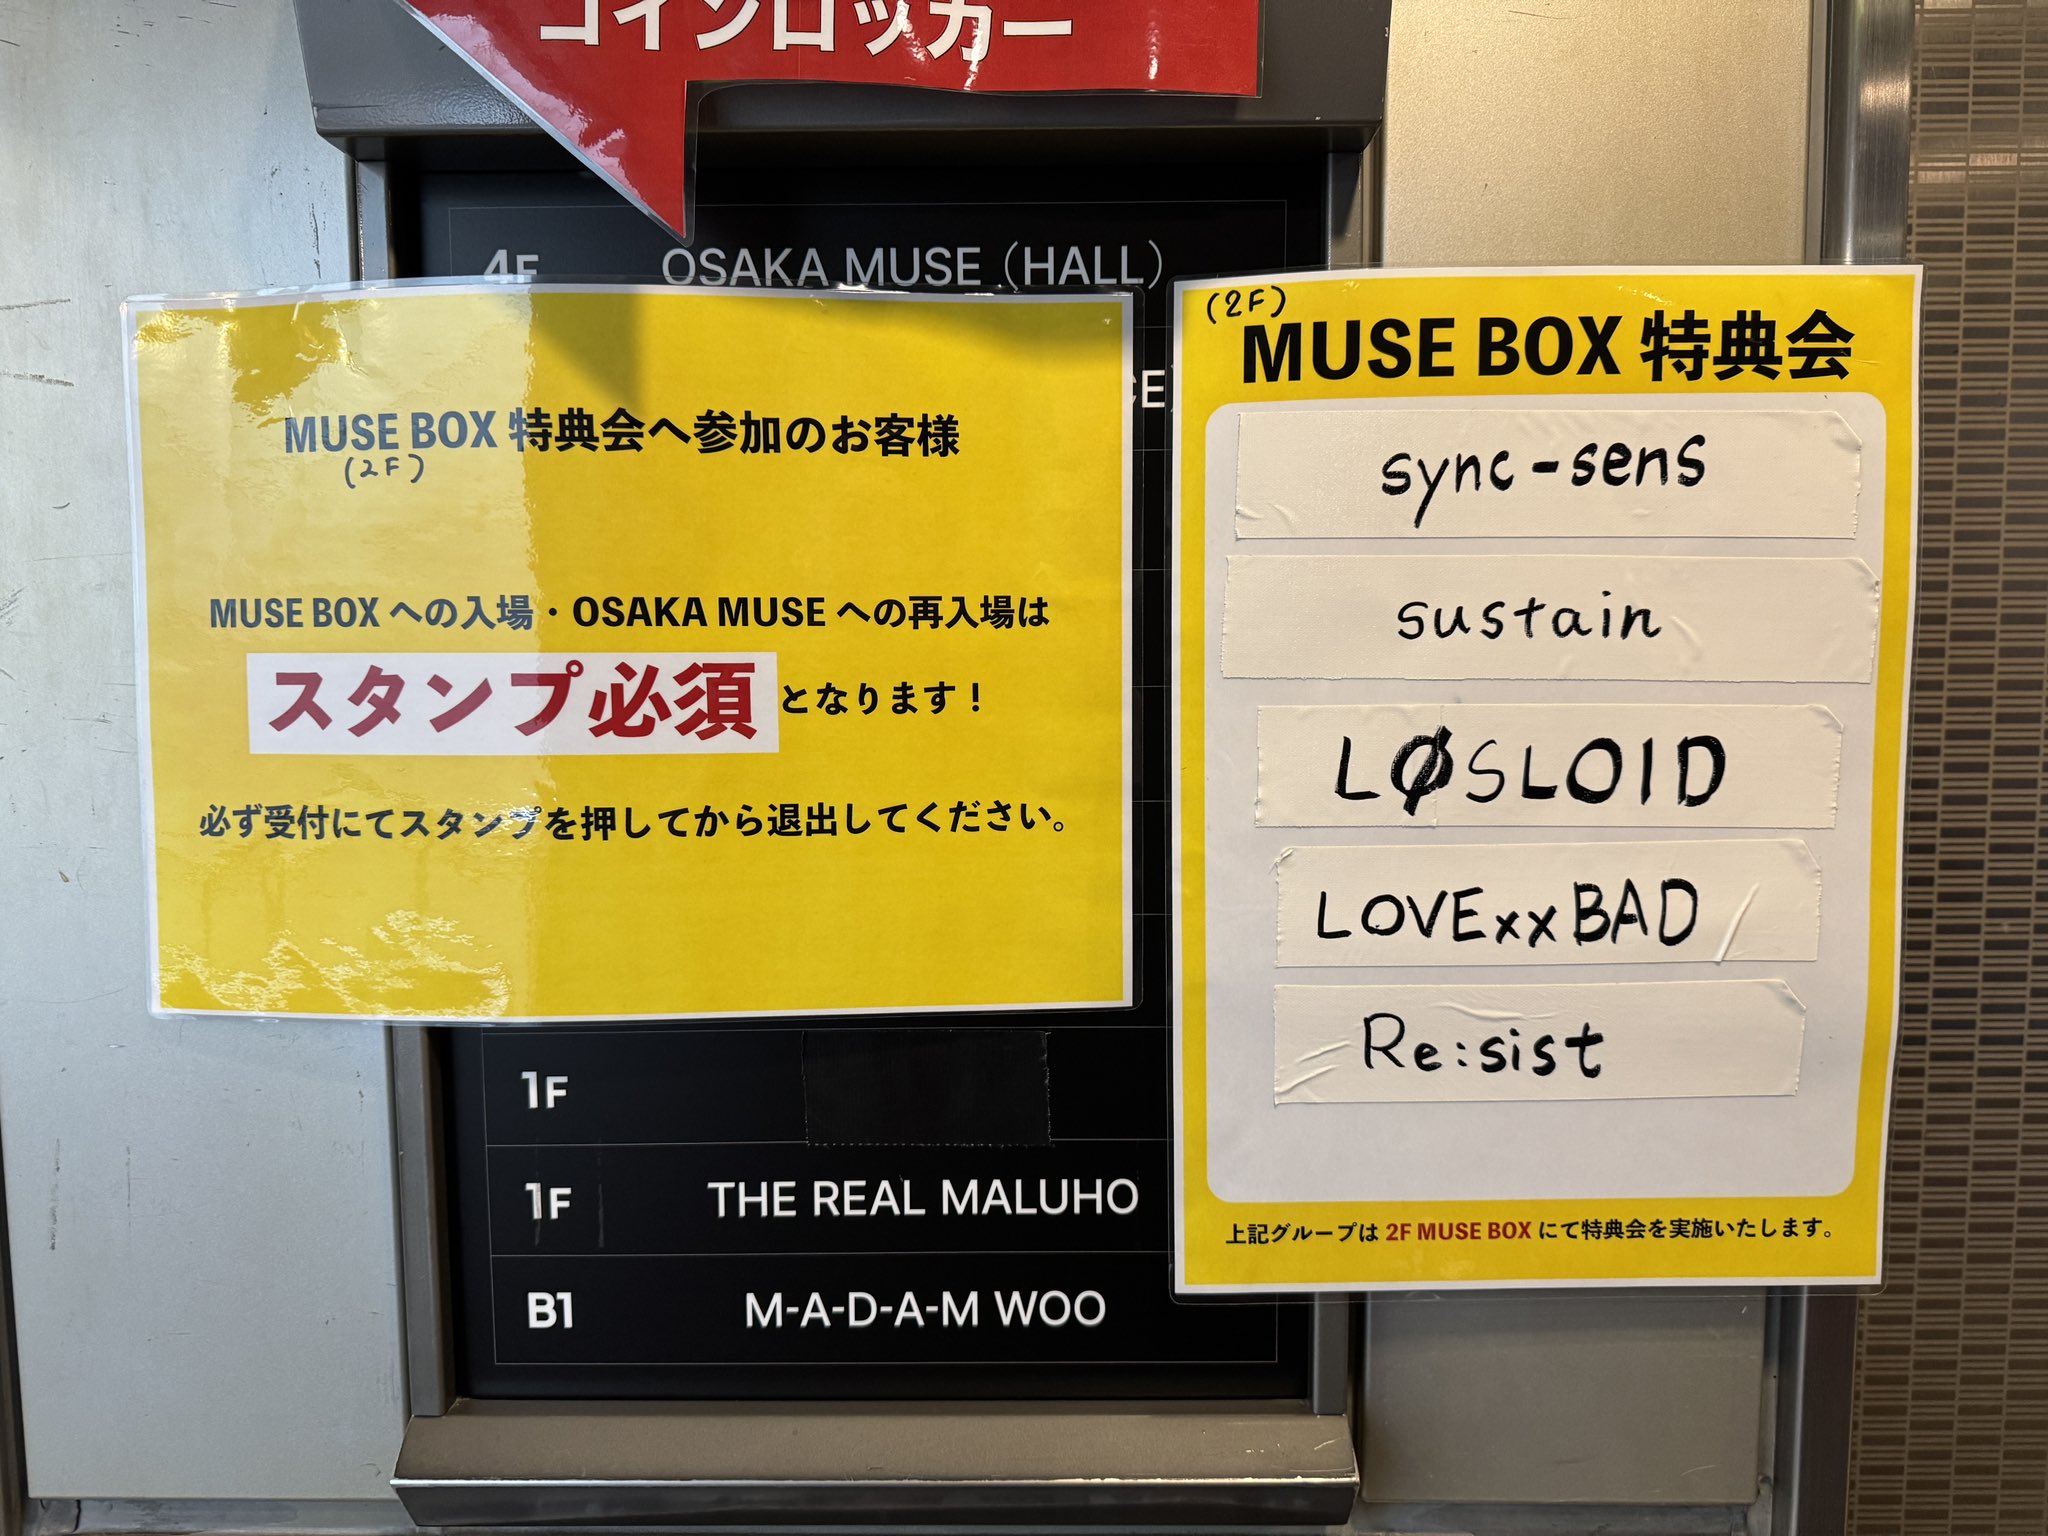 コインロッカー
4F OSAKA MUSE（HALL）
MUSE BOX 特典会へ参加のお客様
(2F)
MUSE BOX への入場・OSAKA MUSE への再入場は
スタンプ必須となります！
必ず受付にてスタンプを押してから退出してください。
1F
1F THE REAL MALUHO
B1 M-A-D-A-M WOO
(2F)
MUSE BOX 特典会
sync-sens
sustain
LØSLOID
LOVExxBAD
Re:sist
上記グループは 2F MUSE BOX にて特典会を実施いたします。